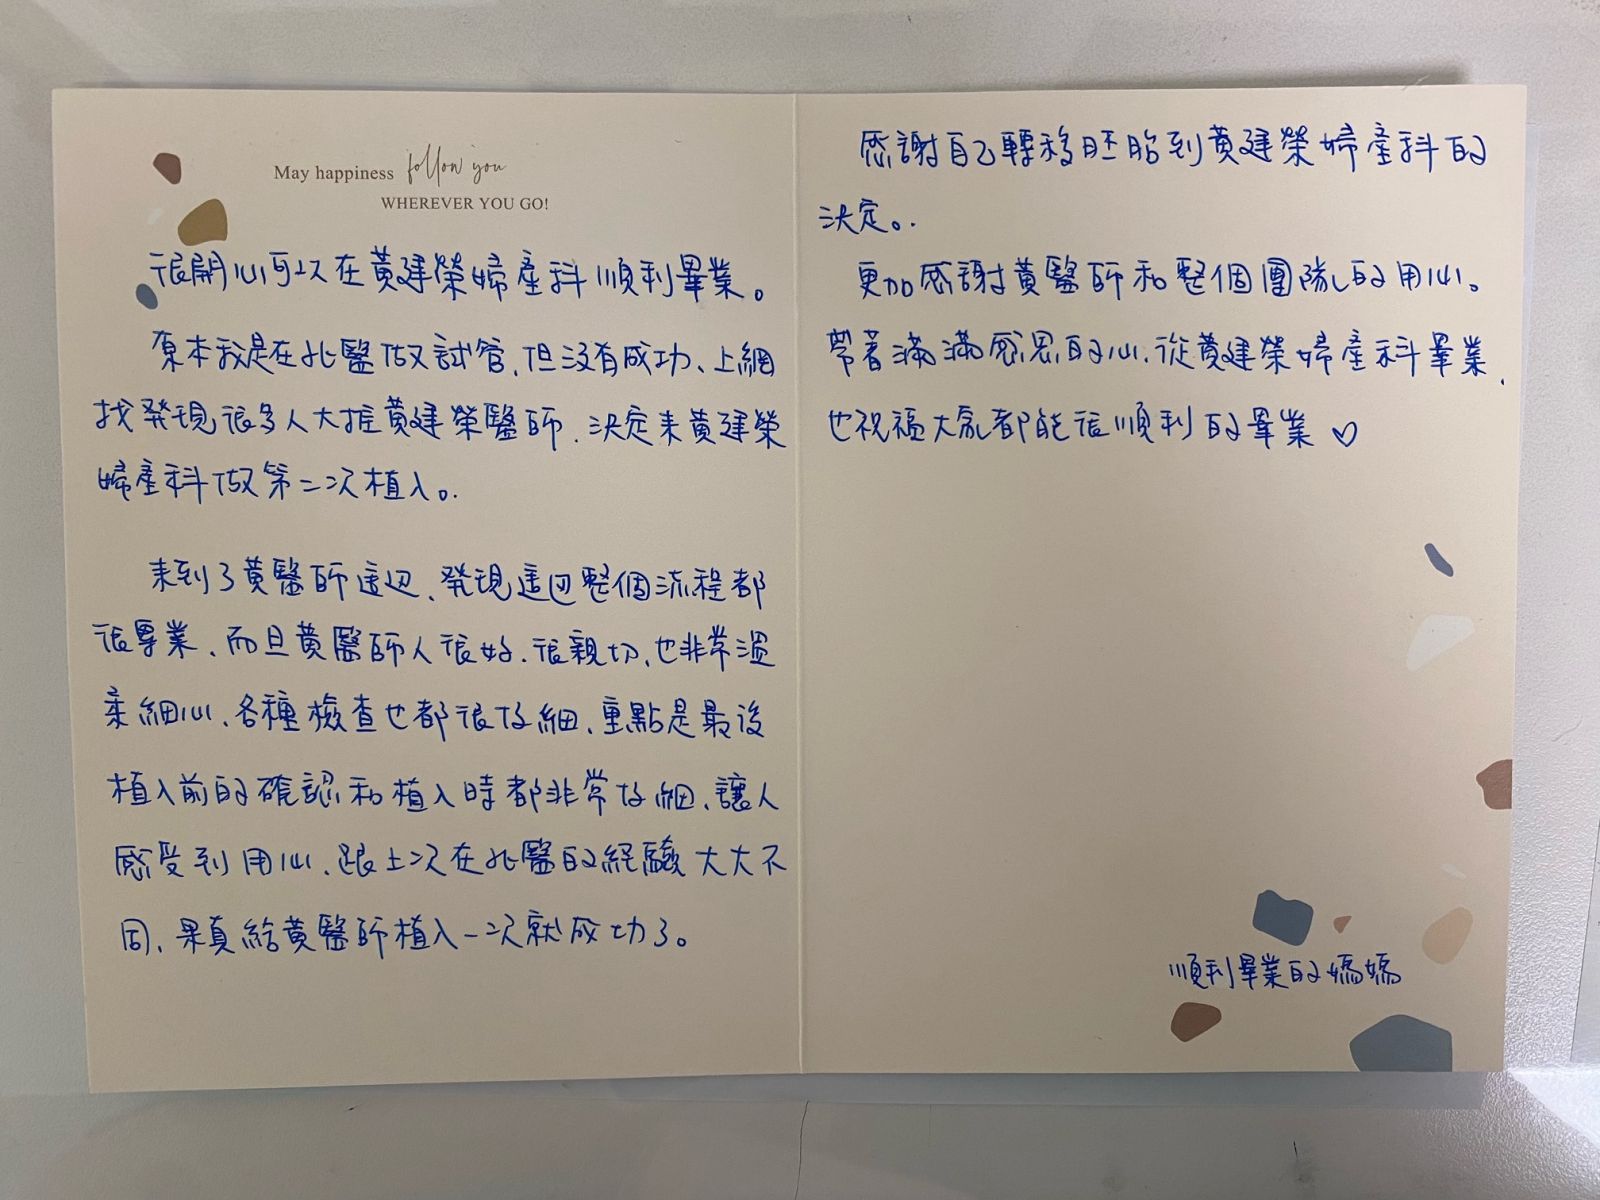 May happiness follow you
WHEREVER YOU GO!
很開心可以在黃建榮婦產科順利畢業。
原本我是在北醫做試管,但沒有成功、上網
找發現很多人大推黃建榮醫師、決定來黃建榮
婦產科做第二次植入。
來到了黃醫師這边、發現這边整個流程都
很專業、而且黃醫師人很好、很親切、也非常溫
柔細心、各種檢查也都很仔細、重點是最後
植入前的確認和植入時都非常仔細、讓人
感受到用心、跟上次在北醫的經驗大大不
同、果真給黃醫師植入一次就成功了。
感謝自己轉移胚胎到黃建榮婦產科的
決定。
更加感謝黃醫師和整個團隊的用心。
帶著滿滿感恩的心、從黃建榮婦產科畢業、
也祝福大家都能很順利的畢業♡
順利畢業的媽媽